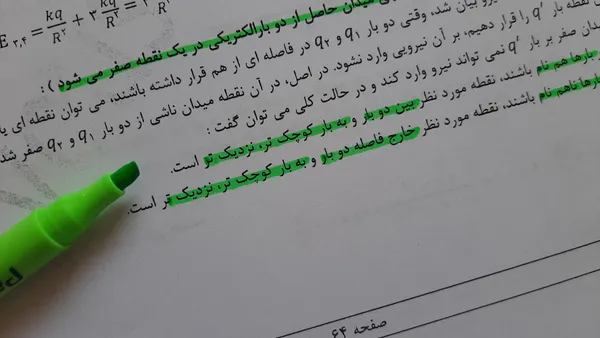 E ۲,۴ = kq/R۲ + ۳ kq/R۲ =
میدان حاصل از دو بارالکتریکی در یک نقطه صفر می شود ) :
نیرو بیان شد، وقتی دو بار q۱ و q۲ در فاصله ای از هم قرار داشته باشند، می توان نقطه ای
نقطه بار q' را قرار دهیم، بر آن نیرویی وارد نشود. در اصل، در آن نقطه میدان ناشی از دو بار q۱ و q۲ صفر
میدان صفر بر بار q' نمی تواند نیرو وارد کند و در حالت کلی می توان گفت :
بارها هم نام باشند، نقطه مورد نظر بین دو بار و به بار کوچک تر، نزدیک تر است.
بارها ناهم نام باشند، نقطه مورد نظر خارج فاصله دو بار و به بار کوچک تر، نزدیک تر است.
صفحه ۶۴